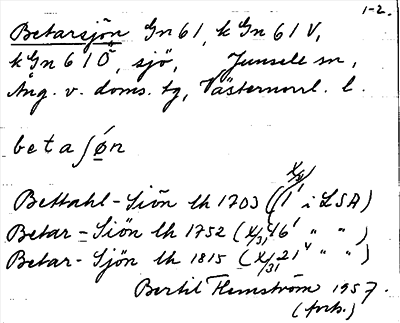 1-2.
Betarsjön Gn 61, k Gn 61 V,
k Gn 61 Ö, sjö, Junsele sn,
Ång. v. doms. tg, Västernorrl. l.
betaʃön
Bettahl-Siön lk 1703 (X/9 1' i LSA)
Betar-Siön lk 1752 (X/31 46' " ")
Betar-Sjön lk 1815 (X/31 21 " ")
Bertil Flemström 1957.
(forts.)